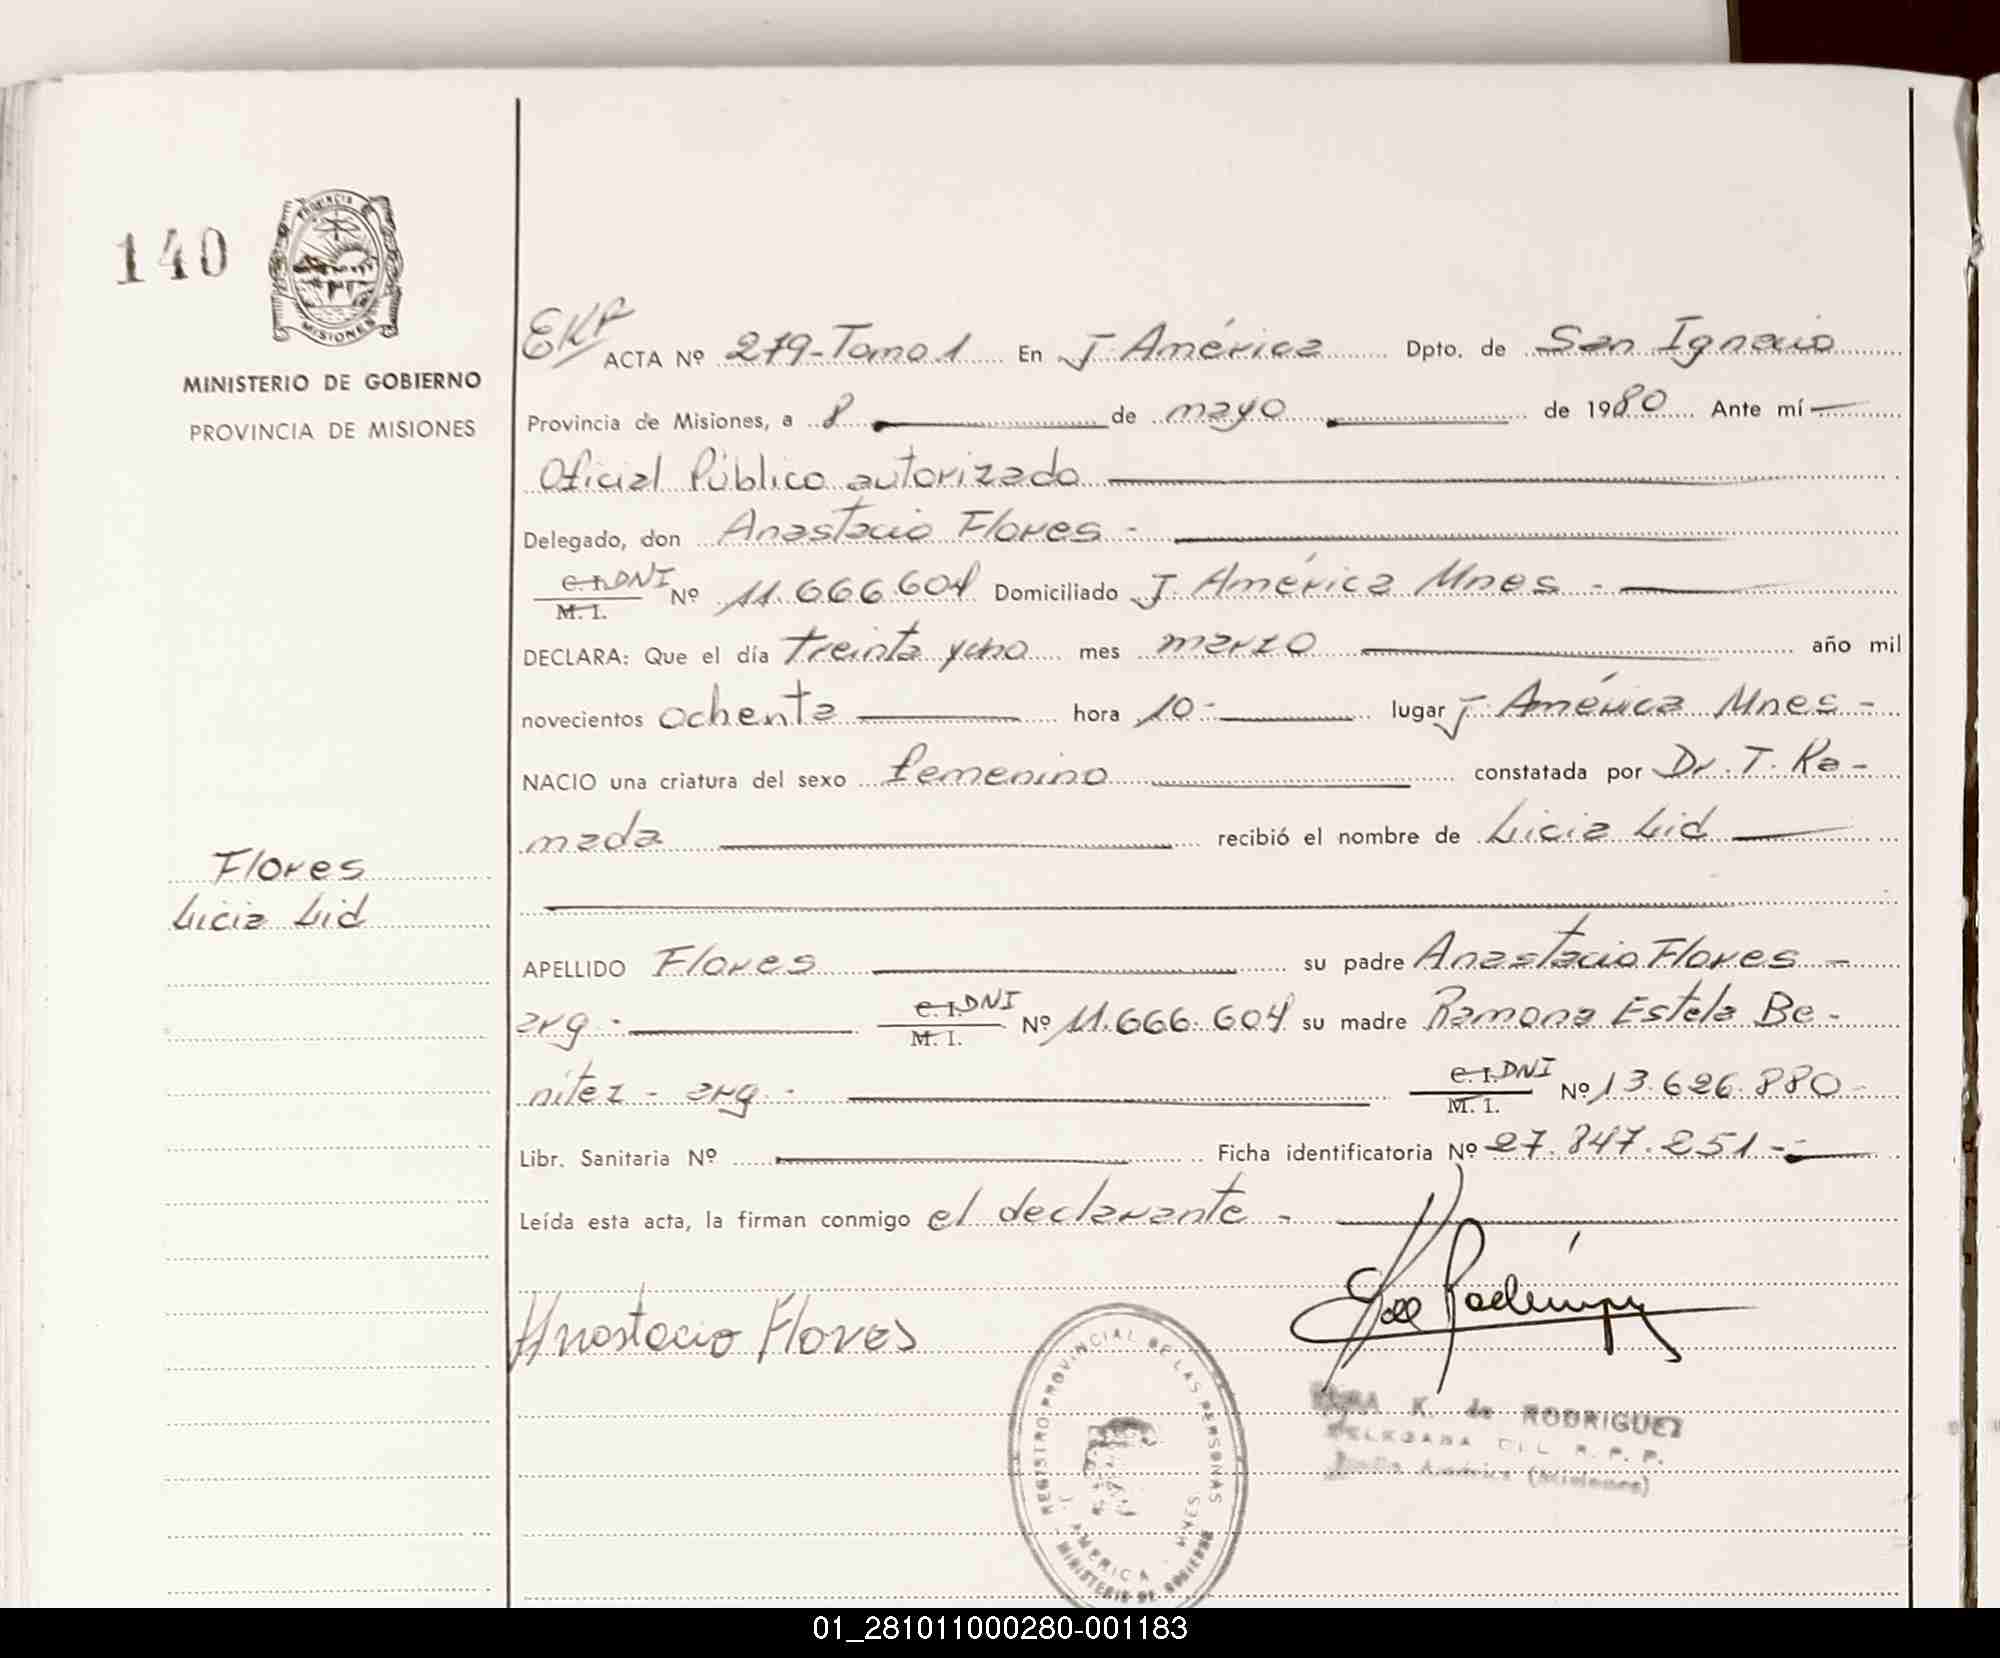 140
PROVINCIA
MISIONES
MINISTERIO DE GOBIERNO
PROVINCIA DE MISIONES
ACTA Nº 279-Tomo 1 En J América Dpto. de San Ignacio
Provincia de Misiones, a 8 de mayo de 1980 Ante mí
Oficial Público autorizado
Delegado, don Anastacio Flores -
C. I. DNI
M. I.
Nº 11.666.604 Domiciliado J. América Mnes -
DECLARA: Que el día treinta y uno mes marzo año mil
novecientos ochenta hora 10- lugar J. América Mnes -
NACIO una criatura del sexo femenino constatada por Dr. T. Ra-
mada recibió el nombre de Licia Lid
Flores
Licia Lid
APELLIDO Flores su padre Anastacio Flores -
arg - C. I. DNI
M. I.
Nº 11.666.604 su madre Ramona Estela Be-
nitez - arg - C. I. DNI
M. I.
Nº 13.626.880-
Libr. Sanitaria Nº Ficha identificatoria Nº 27.847.251-
Leída esta acta, la firman conmigo el declarante -
Anastacio Flores
K. de RODRIGUEZ
DELEGADA DEL R. P. P.
América (Misiones)
REGISTRO PROVINCIAL DE LAS PERSONAS
J. AMERICA - MNES
MINISTERIO DE GOBIERNO
01_281011000280-001183